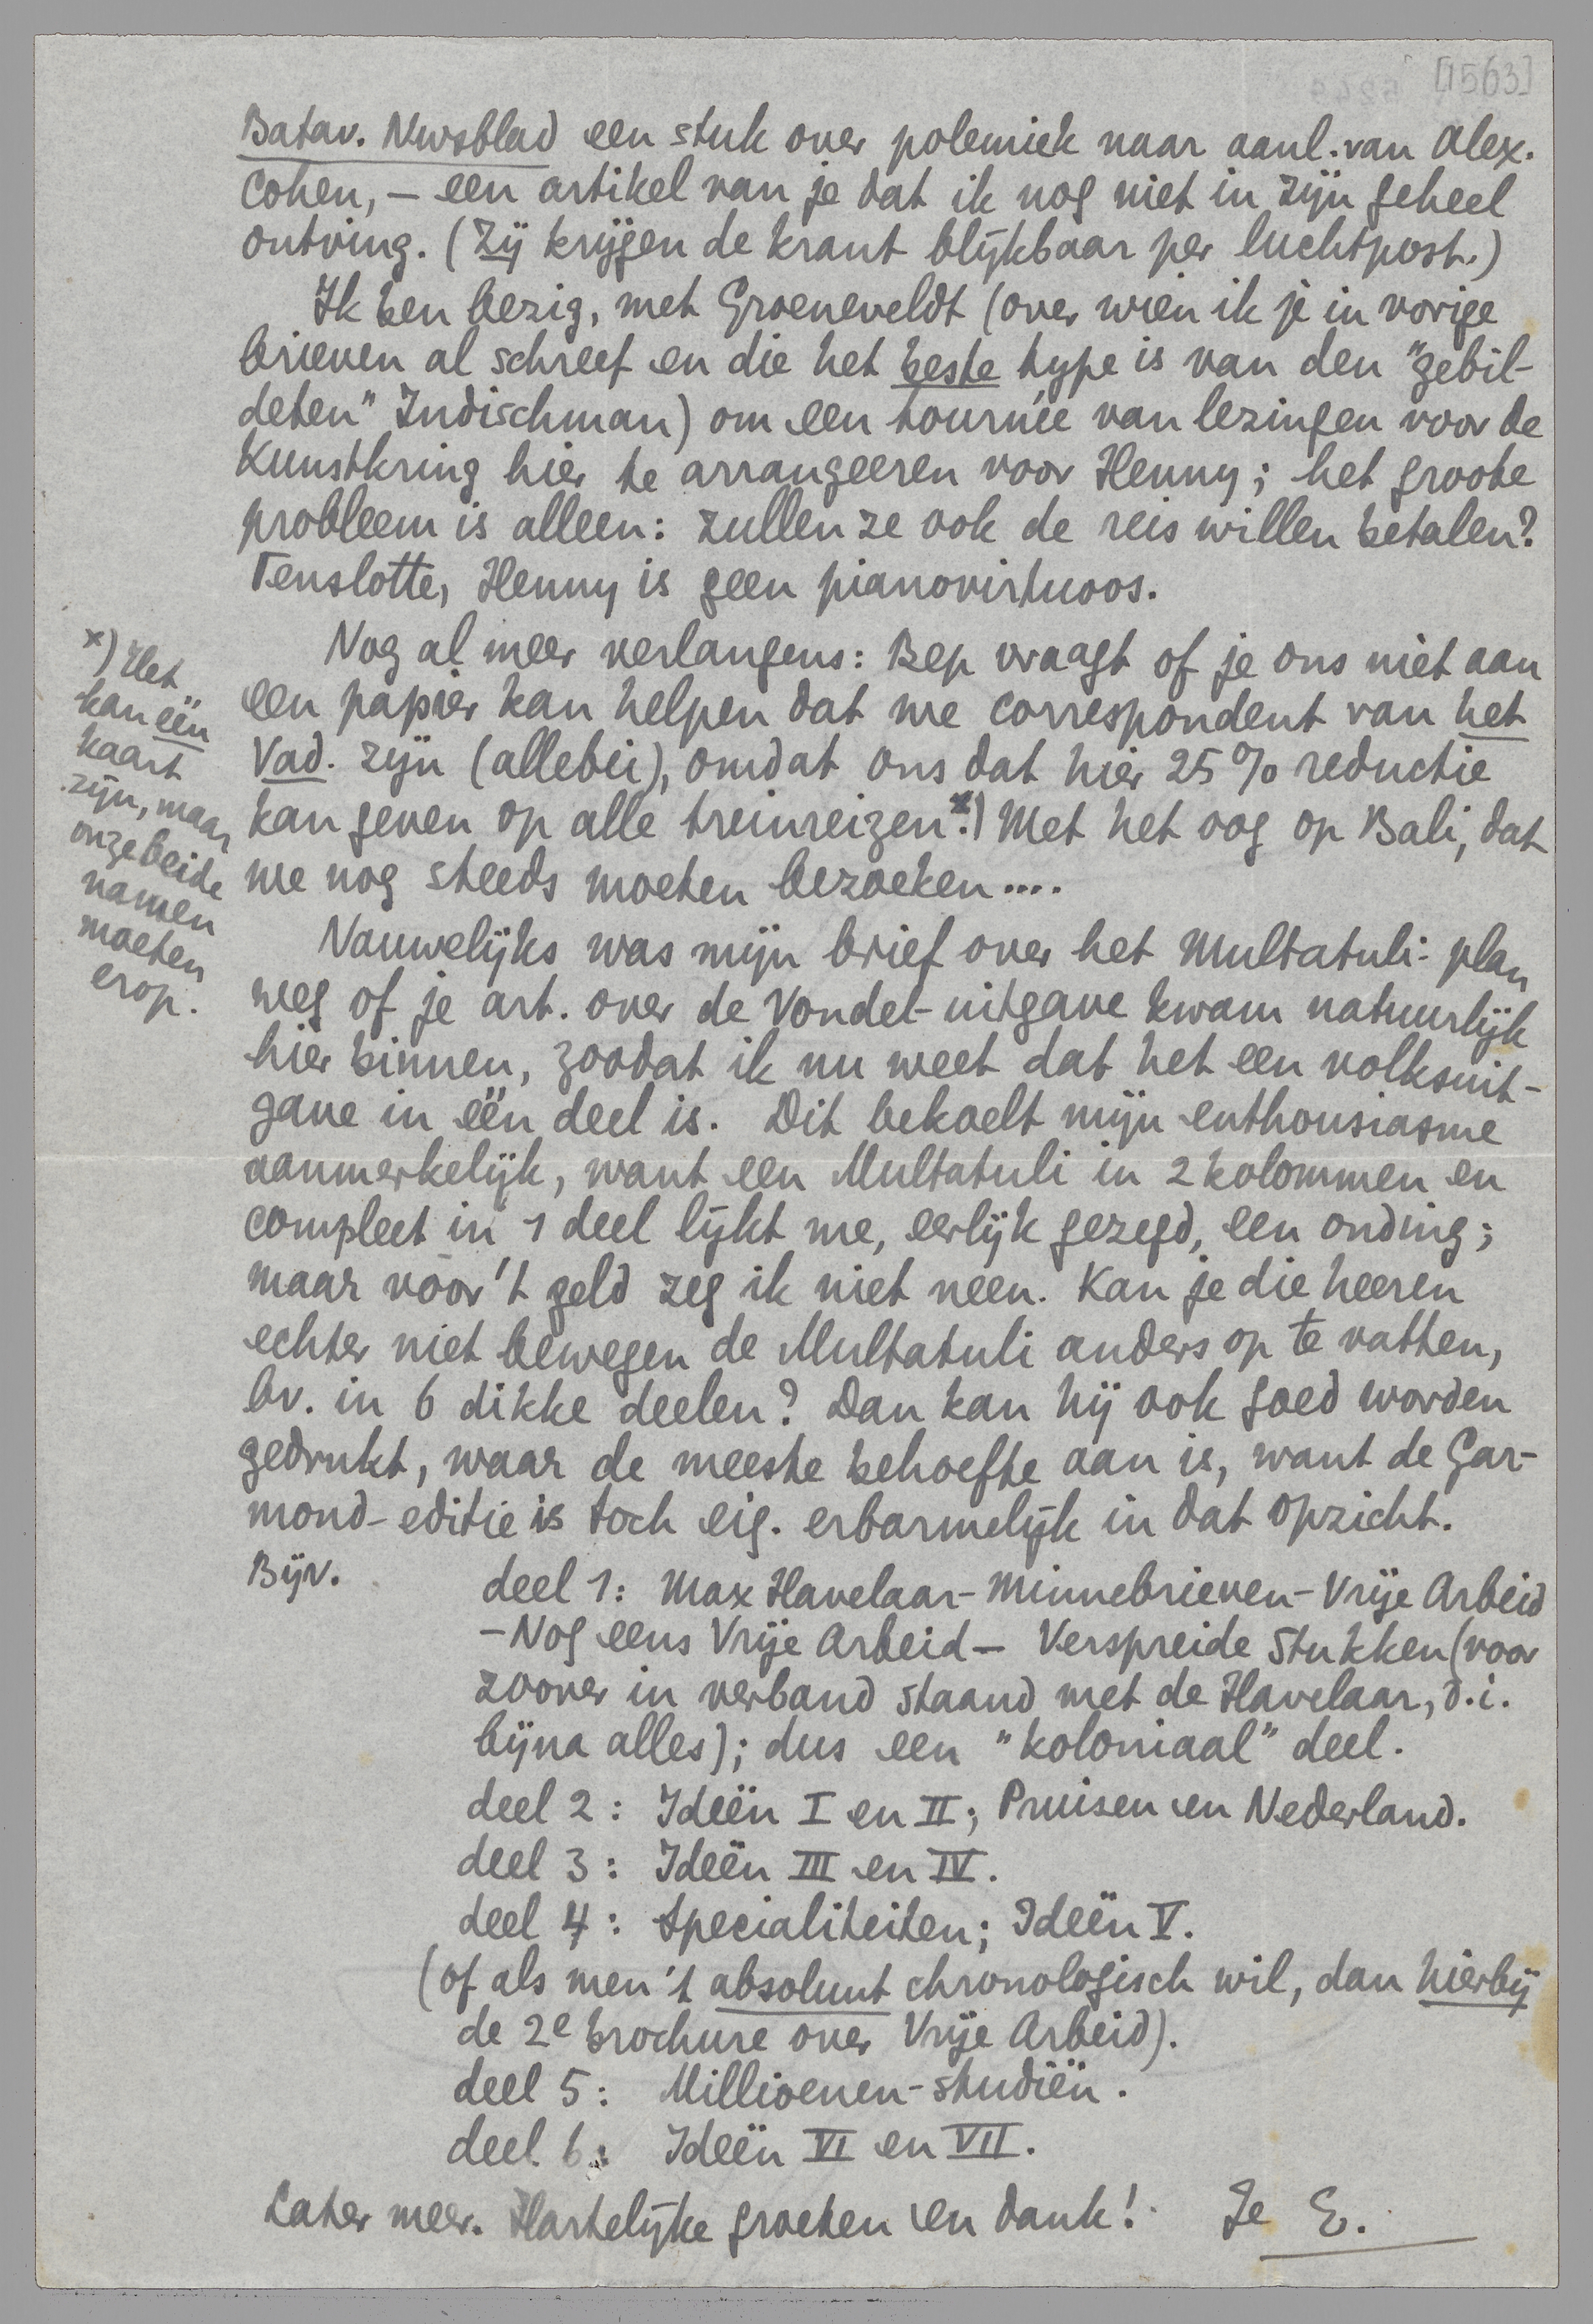 [1563]
Batav. Nwsblad een stuk over polemiek naar aanl. van Alex.
Cohen, – een artikel van je dat ik nog niet in zijn geheel
ontving. (Zij krijgen de krant blijkbaar per luchtpost.)
Ik ben bezig, met Groeneveldt (over wien ik je in vorige
brieven al schreef en die het beste type is van den "gebil-
deten" Indischman) om een tournée van lezingen voor de
Kunstkring hier te arrangeeren voor Henny; het groote
probleem is alleen: zullen ze ook de reis willen betalen?
Tenslotte, Henny is geen pianovirtuoos.
Nog al meer verlangens: Bep vraagt of je ons niet aan
een papier kan helpen dat we correspondent van het
Vad. zijn (allebei), omdat ons dat hier 25% reductie
kan geven op alle treinreizen.x) Met het oog op Bali, dat
we nog steeds moeten bezoeken....
x) Het
kan één
kaart
zijn, maar
onze beide
namen
moeten
erop.
Nauwelijks was mijn brief over het Multatuli-plan
weg of je art. over de Vondel-uitgave kwam natuurlijk
hier binnen, zoodat ik nu weet dat het een volksuit-
gave in één deel is. Dit bekoelt mijn enthousiasme
aanmerkelijk, want een Multatuli in 2 kolommen en
compleet in 1 deel lijkt me, eerlijk gezegd, een onding;
maar voor 't geld zeg ik niet neen. Kan je die heeren
echter niet bewegen de Multatuli anders op te vatten,
bv. in 6 dikke deelen? Dan kan hij ook goed worden
gedrukt, waar de meeste behoefte aan is, want de Gar-
mond-editie is toch eig. erbarmelijk in dat opzicht.
Bijv.
deel 1: Max Havelaar – Minnebrieven – Vrije Arbeid
– Nog eens Vrije Arbeid – Verspreide Stukken (voor
zoover in verband staand met de Havelaar, d.i.
bijna alles); dus een "koloniaal" deel.
deel 2: Ideën I en II; Pruisen en Nederland.
deel 3: Ideën III en IV.
deel 4: Specialiteiten; Ideën V.
(of als men 't absoluut chronologisch wil, dan hierbij
de 2e brochure over Vrije Arbeid).
deel 5: Millioenen-studiën.
deel 6: Ideën VI en VII.
Later meer. Hartelijke groeten en dank! Je E.